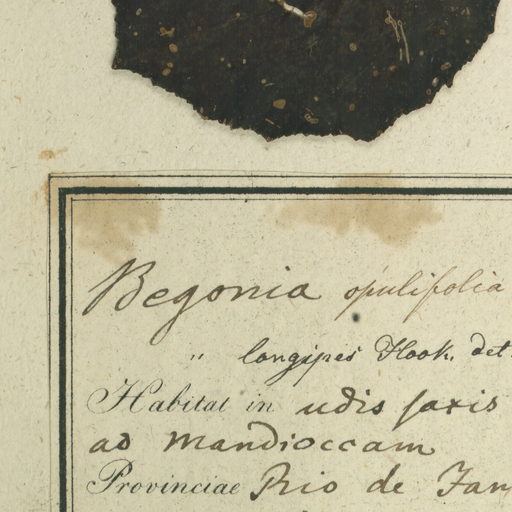 Begonia opulifolia
" longipes Hook. det.
Habitat in udis saxis
ad Mandioccam
Provinciae Rio de Jan